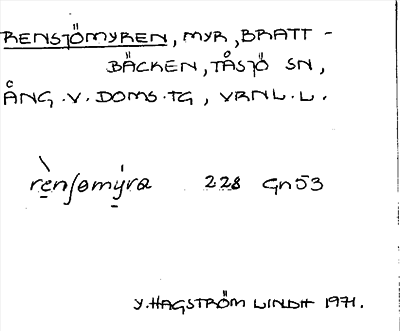 RENSJÖMYREN, MYR, BRATT-
BÄCKEN, TÅSJÖ SN,
ÅNG.V. DOMS.TG, VRNL.L.
rè̱nʃomý̱ra 228 Gn53
Y. HAGSTRÖM LINDH 1971.